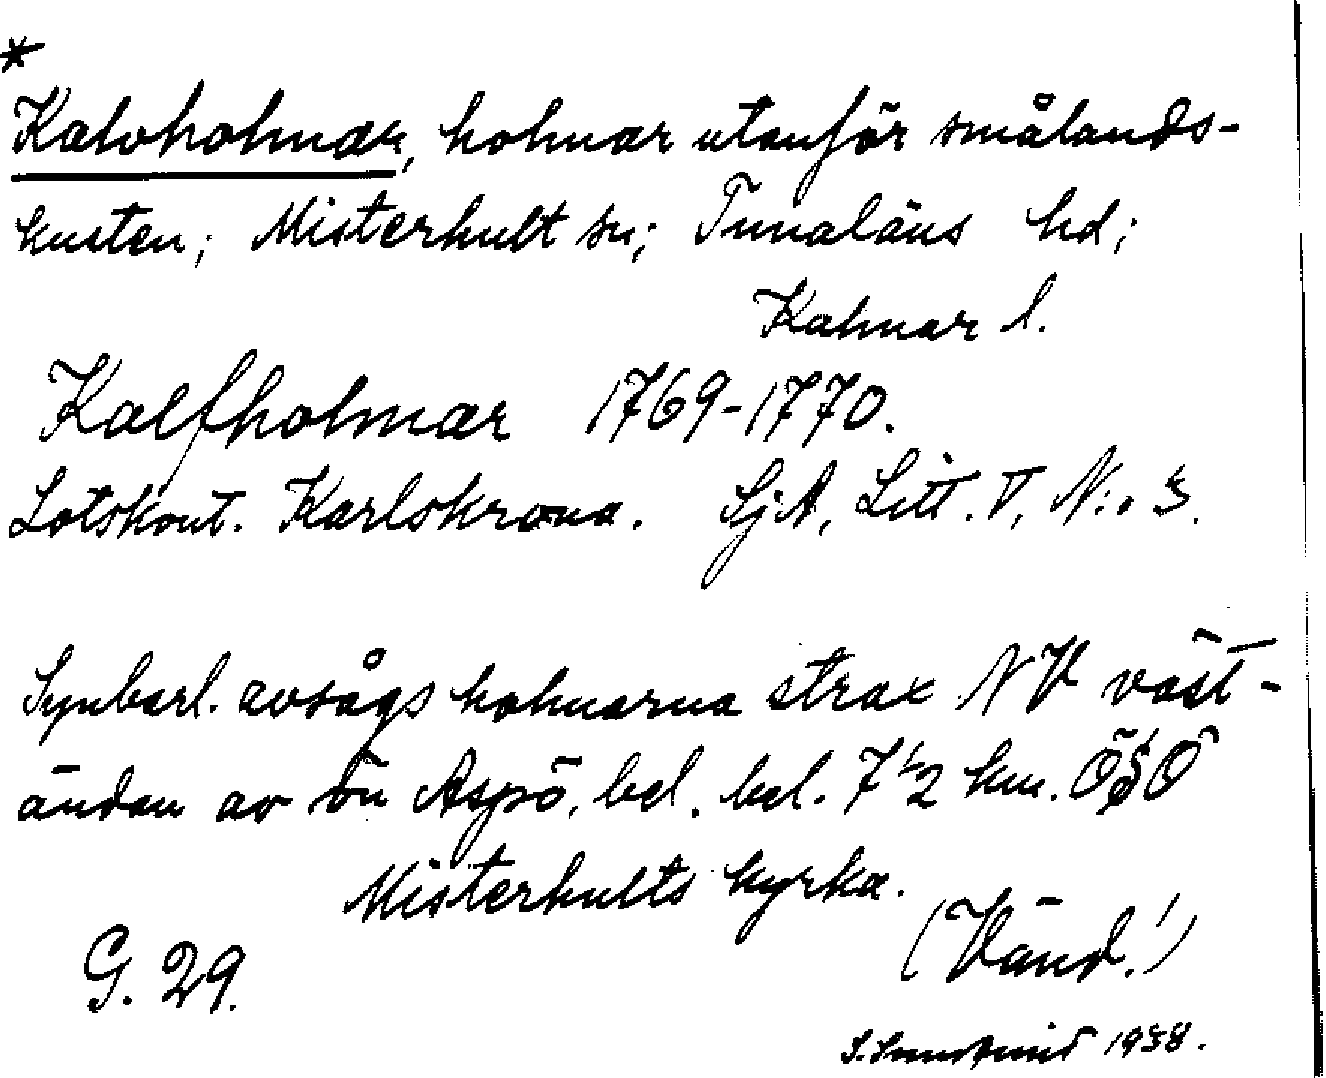 *
Kalvholmar, holmar utanför smålands-
kusten; Misterhult sn; Tunaläns hd;
Kalmar l.
Kalfholmar 1769-1770.
Lotskont. Karlskrona. SjA, Litt. V, N:o 3.
Synbarl. avsågs holmarna strax NV väst-
ändan av ön Aspö, bel. 7 1/2 km. ÖSÖ
Misterhults kyrka.
(Vänd!)
G. 29.
1938.